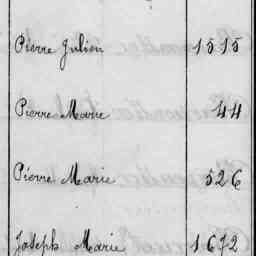 Pierre Julien 1515
Pierre Marie 44
Pierre Marie 526
Joseph Marie 1672